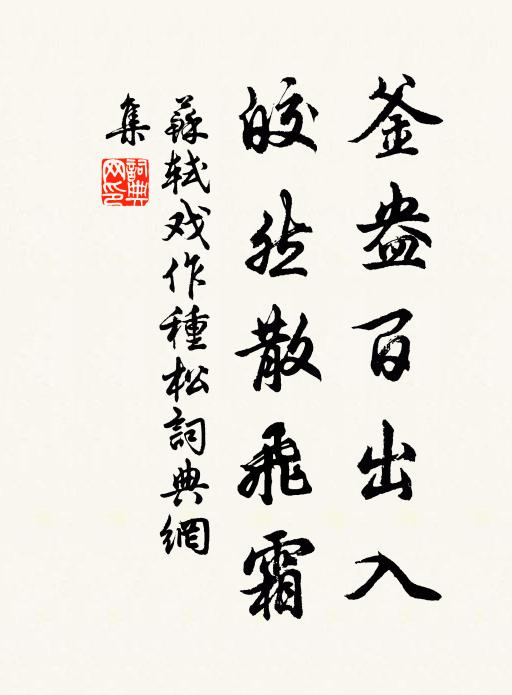 釜盎百出入
皎然散飛霜
蘇軾戏作種松詞典網
集
詞典
网印